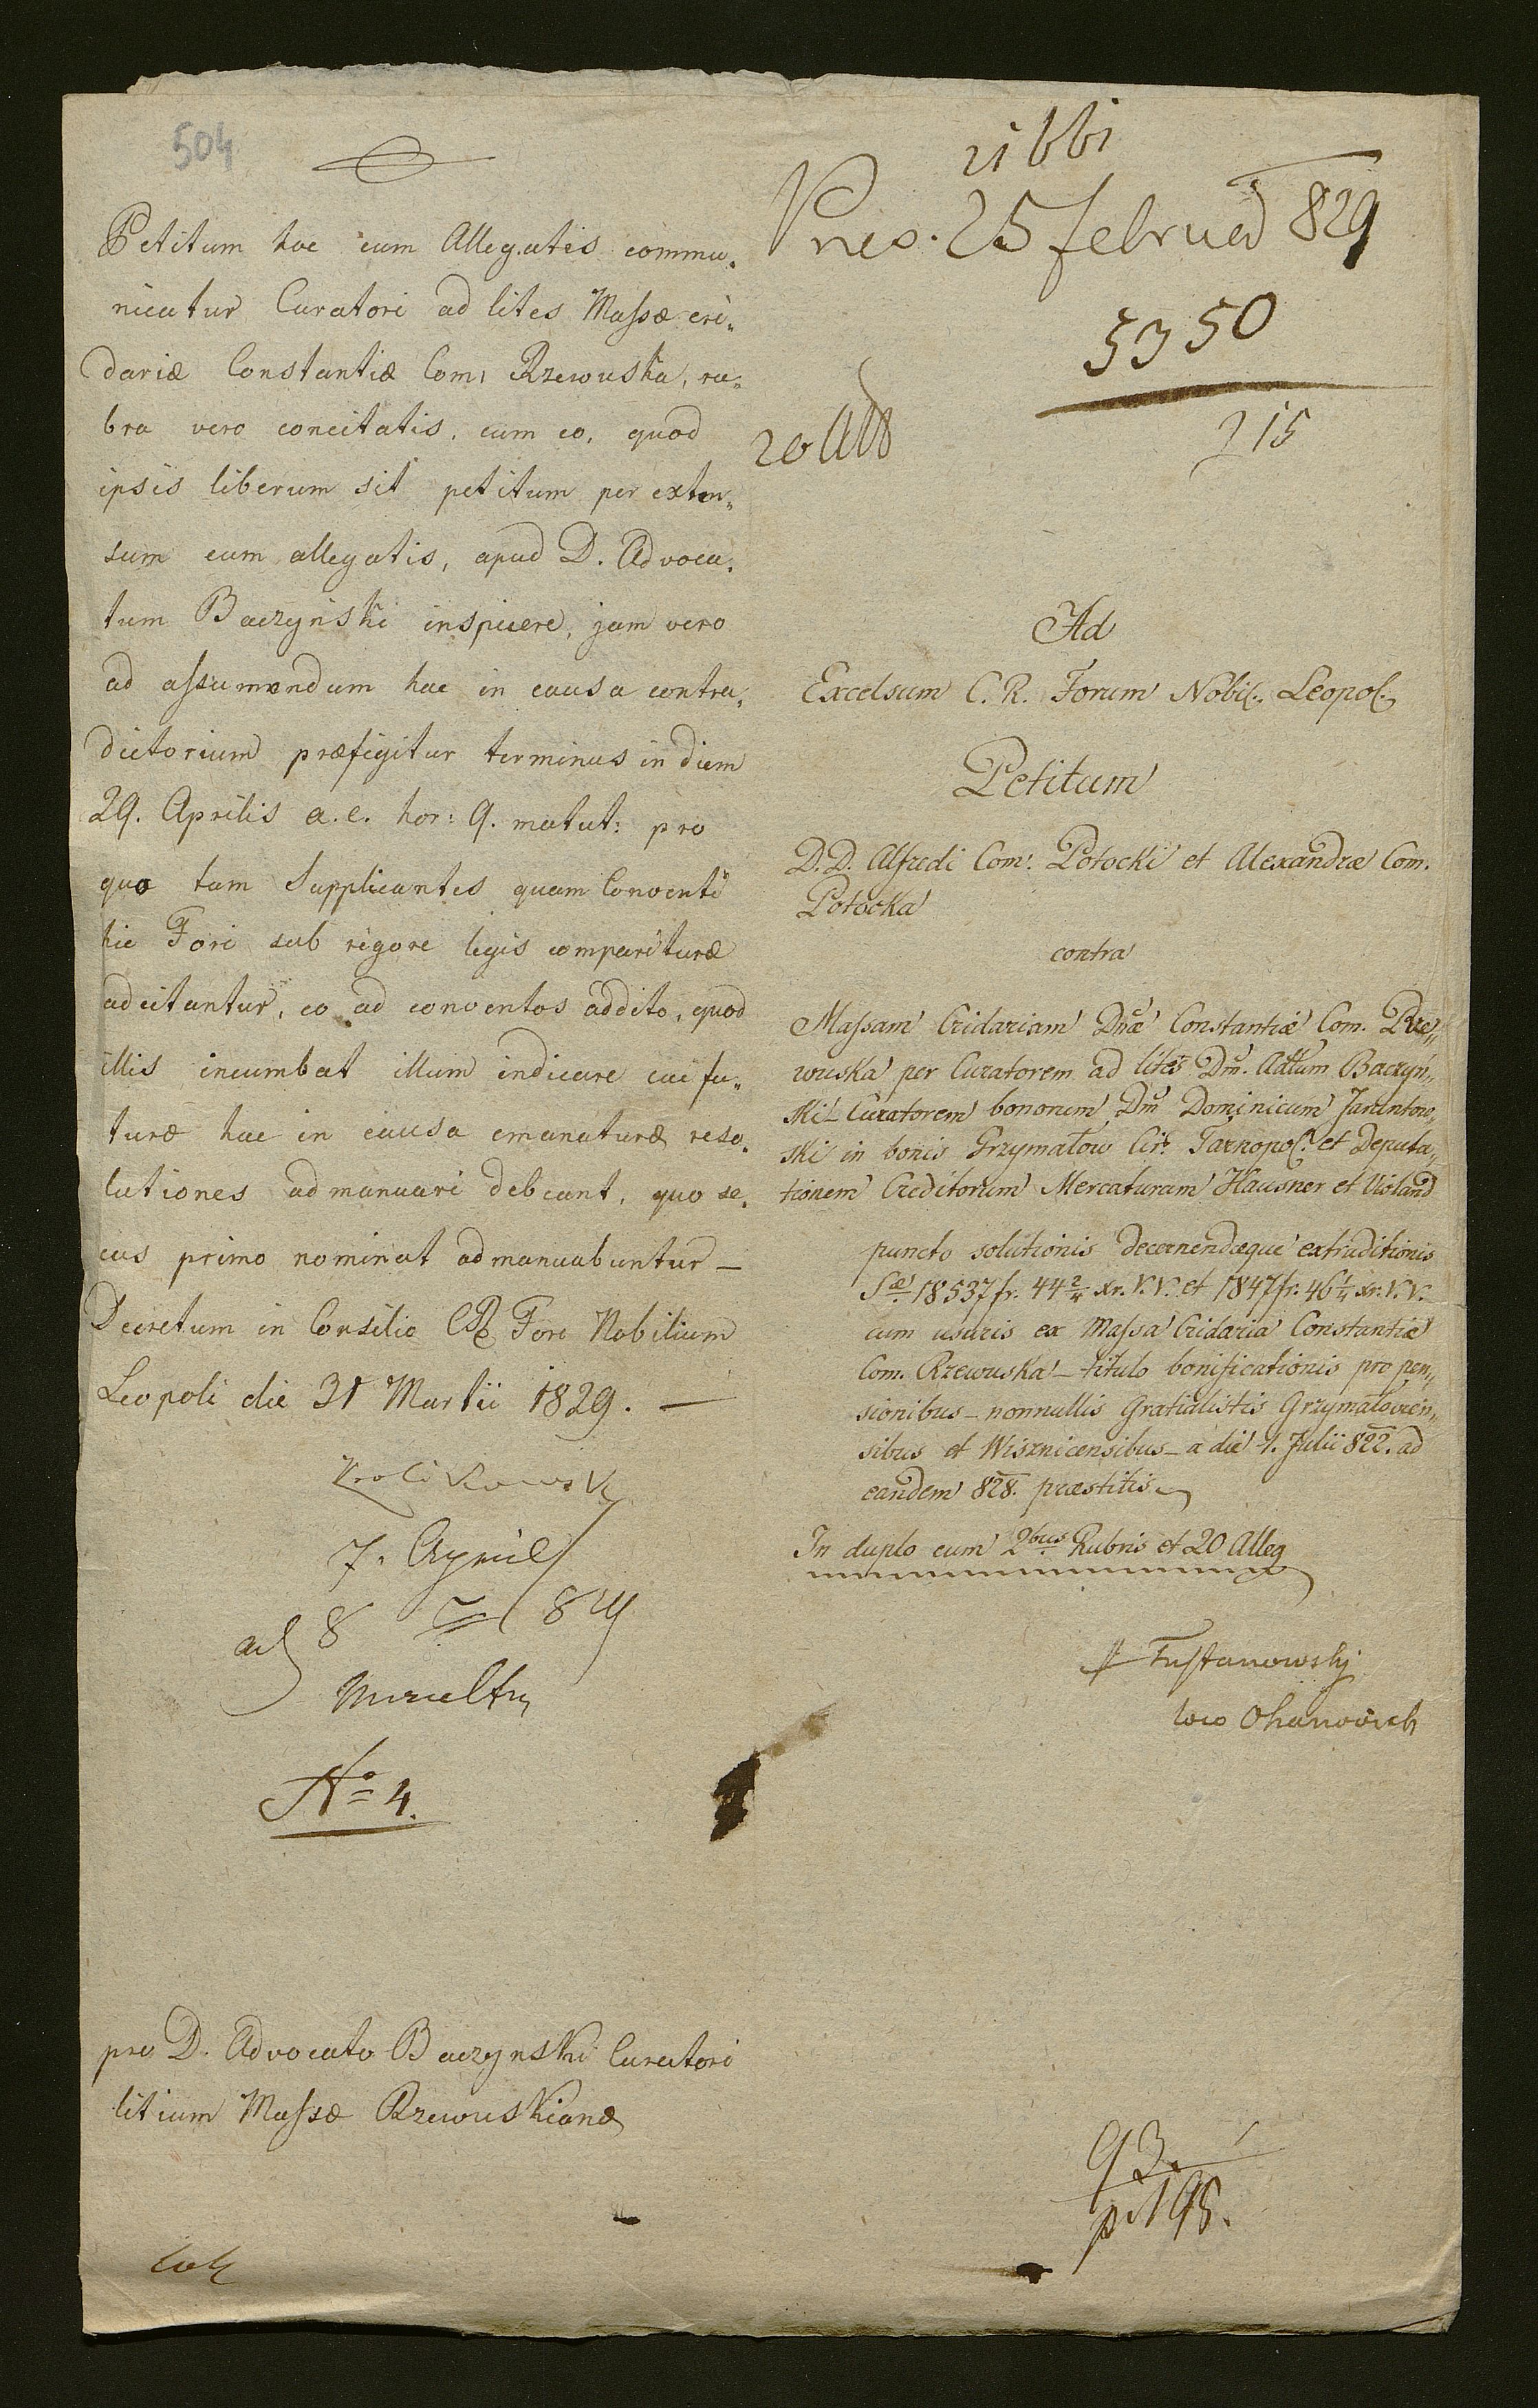 504
Petitum hoc cum Allegatis commu„
nicatur Curatori ad lites Massæ cri„
dariæ Constantiæ Com: Rzewuska, ru„
bra vero concitatis, cum eo, quod
ipsis liberum sit petitum per exten„
sum cum allegatis, apud D. Advoca„
tum Baczyński inspicere, jam vero
ad assumendum hac in causa contra„
dictorium præfigitur terminus in diem
29. Aprilis a. c. hor: 9. matut: pro
quo tam Supplicantes quam Conventi
hic Fori sub rigore legis comparituræ
adcitantur, eo ad conventos addito, quod
illis incumbat illum indicare cui fu„
turæ hac in causa emanaturæ reso„
lutiones admanuari debeant, quo se„
cus primo nominat admanuabuntur –
Decretum in Consilio CR Fori Nobilium
Leopoli die 31 Martii 1829. –
Krolikowski
7. April
ad 8 829
No 4.
pro D. Advocato Baczynski Curatori
litium Massæ Rzewuskianæ
21661
Pres. 25 februar 829
5350
215
20 All
Ad
Excelsum C. R. Forum Nobil. Leopol.
Petitum
D. D. Alfredi Com. Potocki et Alexandræ Com.
Potocka
contra
Massam Cridariam Dnæ Constantiæ Com. Rze„
wuska per Curatorem ad lites Dm. Adtum Baczyń„
ski – Curatorem bonorum Dm Dominicum Janintow„
ski in bonis Grzymałow Cir. Tarnopol. et Deputa„
tionem Creditorum Mercaturam Hausner et Violand
puncto solutionis decernendæque extraditionis
Sæ 18537 fr. 44 2/4 xr. V. V. et 1847 fr. 46 1/4 xr. V. V.
cum usuris ex Massa Cridaria Constantiæ
Com. Rzewuska – titulo bonificationis pro pen„
sionibus – nonnullis Gratialistis Grzymałovien„
sibus et Wisznicensibus – a die 1. Julii 822. ad
eandem 828. præstitis
In duplo cum 2bus Rubris et 20 Alleg
Fustanowsky
loco Ohanowich
93.
p. 198.